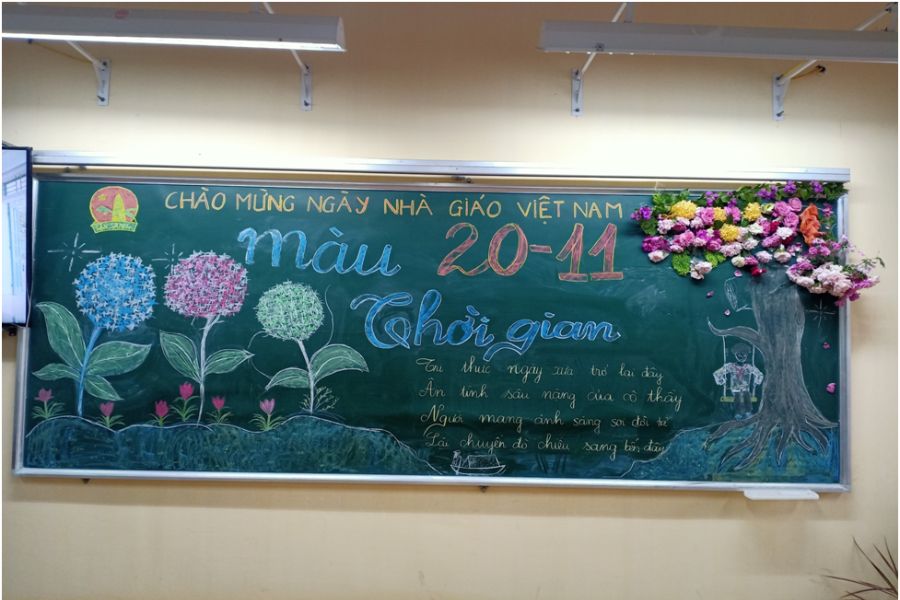 CHÀO MỪNG NGÀY NHÀ GIÁO VIỆT NAM
20-11
màu
Thời gian
Tri thức ngày xưa trở lại đây
Ân tình sâu nặng của cô thầy
Người mang ánh sáng soi đời trẻ
Lái chuyến đò chiều sang bến đây
SẴN SÀNG